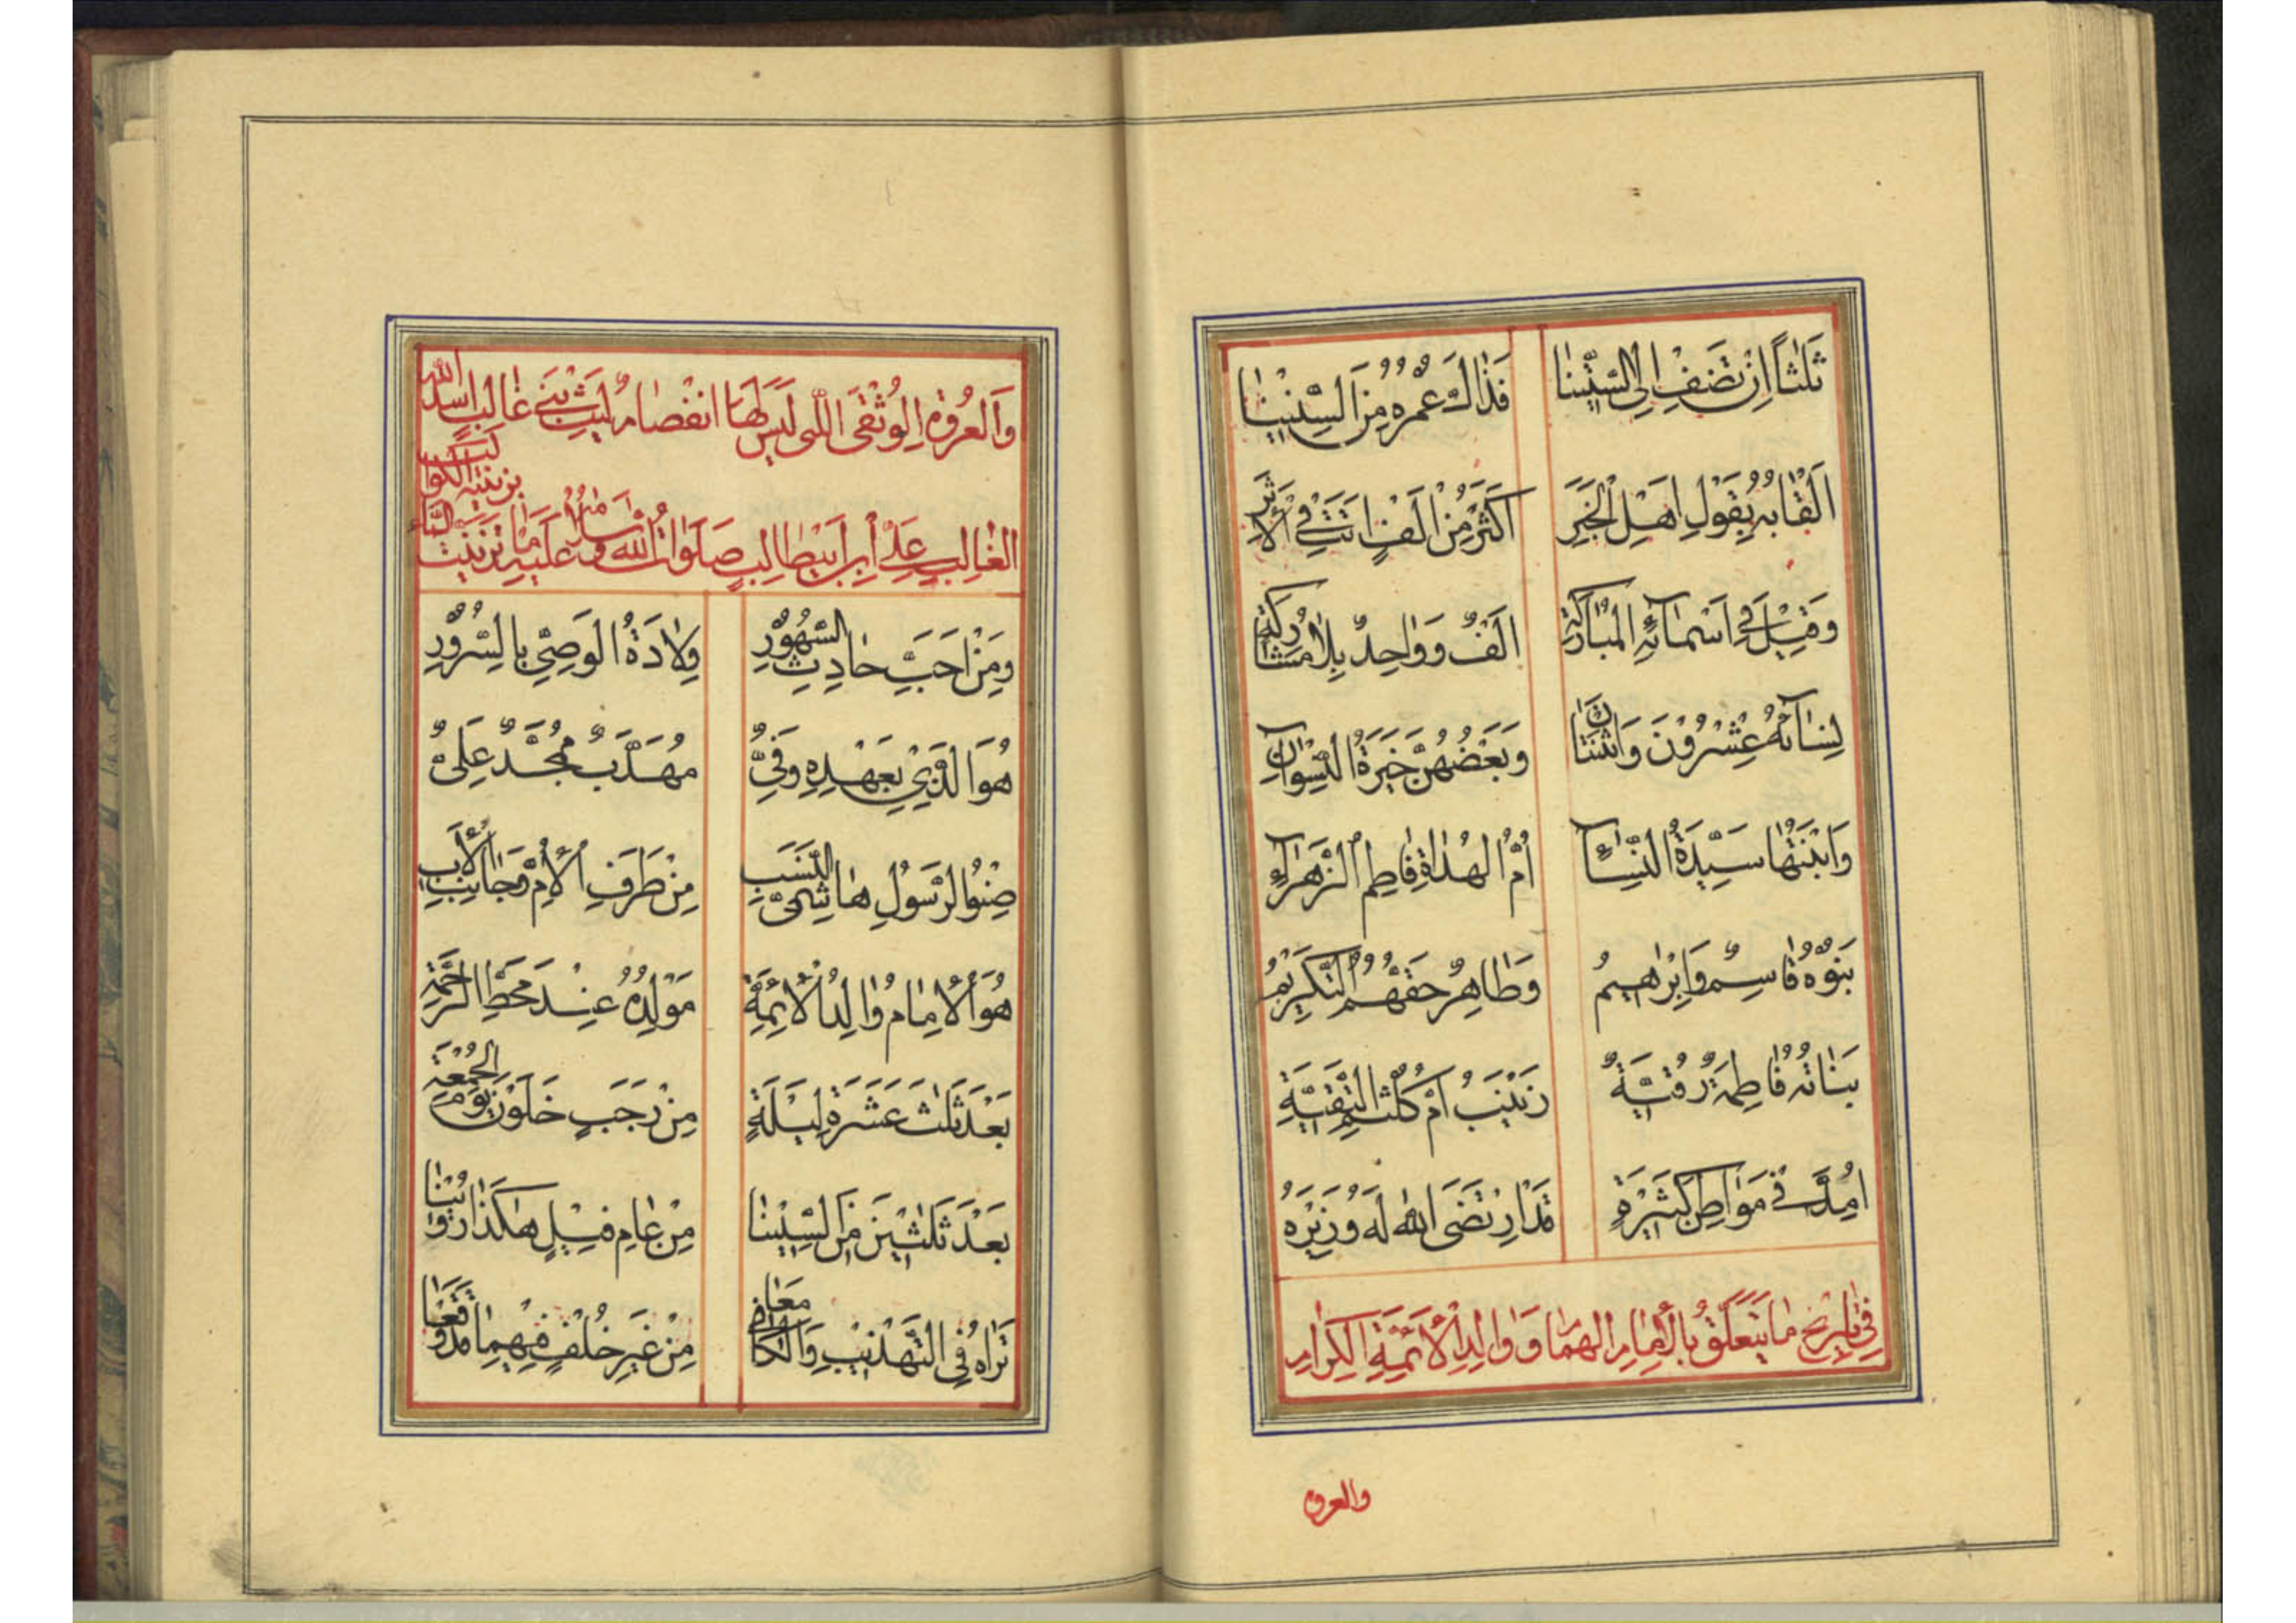 ثَلٰثاً اِنْ تَضِفْ اِلَی السِّتّینٰا فَذٰالِكَ عُمْرُهُ مِنَ السِّنینٰا
اَلْقٰابُهُ بِقَوْلِ اَهْلِ الْخَبَرِ اَكْثَرُ مِنْ اَلْفٍ اَتَتْ فِی الْاَثَرِ
وَقیلَ فی اَسْمٰآئِهِ الْمُبٰارَكَةِ اَلْفٌ وَوٰاحِدٌ بِلٰا مُشٰارَكَةِ
نِسٰآئُهُ عِشْرُوْنَ وَاثْنَتٰانِ وَبَعْضُهُنَّ خَیَرَةُ النِّسْوٰانِ
وَابْنَتُهٰا سَیِّدَةُ النِّسٰآءِ اُمُّ الْهُدٰاةِ فٰاطِمُ الزَّهْرٰآءِ
بَنُوْهُ قٰاسِمٌ وَاِبْرٰاهیمُ وَطٰاهِرٌ حَقُّهُمُ التَّكْریمُ
بَنٰاتُهُ فٰاطِمَةٌ رُقَیَّةٌ زَیْنَبُ اُمُّ كُلْثُمِ التَّقِیَّةِ
اُمِدَّ فی مَوٰاطِنٍ كَثیرَةٍ قَدِ ارْتَضَی اللّٰهُ لَهُ وَزیرَهُ
فی تٰاریخِ مٰا یَتَعَلَّقُ بِالْاِمٰامِ الْهُمٰامِ وَوٰالِدِ الْاَئِمَّةِ الْكِرٰامِ
والعروة
وَالْعُرْوَةِ الْوُثْقَی الَّتی لَیْسَ لَهَا انْفِصٰامٌ لَیْثِ بَنی غٰالِبٍ اَسَدِ اللّٰهِ
الْغٰالِبِ عَلِیِّ بْنِ اَبیطٰالِبٍ صَلَوٰاتُ اللّٰهِ وَسَلٰامُهُ عَلَیْهِ مٰا تَزَیَّنَتِ السَّمٰآءُ بِزینَةِ الْكَوٰاكِبِ
وَمِنْ اَحَبِّ حٰادِثِ الشُّهُوْرِ وِلٰادَةُ الْوَصِیِّ بِالسُّرُوْرِ
هُوَ الَّذی بِعَهْدِهِ وَفِیٌّ مُهَذَّبٌ مُمَجَّدٌ عَلِیٌّ
صِنْوُ الرَّسُوْلِ هٰاشِمِیُّ النَّسَبِ مِنْ طَرَفِ الْاُمِّ وَجٰانِبِ الْاَبِ
هُوَ الْاِمٰامُ وٰالِدُ الْاَئِمَّةِ مَوْلِدُهُ عِنْدَ مَحَطِّ الرَّحْمَةِ
بَعْدَ ثَلٰثَ عَشْرَةَ لَیْلَةٍ مِنْ رَجَبٍ خَلَوْنَ یَوْمَ الْجُمْعَةِ
بَعْدَ ثَلٰثینَ مِنَ السِّنینٰا مِنْ عٰامِ فیلٍ هٰكَذٰا رُوّینٰا
تَرٰاهُ فِی التَّهْذیبِ وَالْكٰافی مَعٰا مِنْ غَیْرِ خُلْفٍ فیهِمٰا قَدْ وَقَعٰا